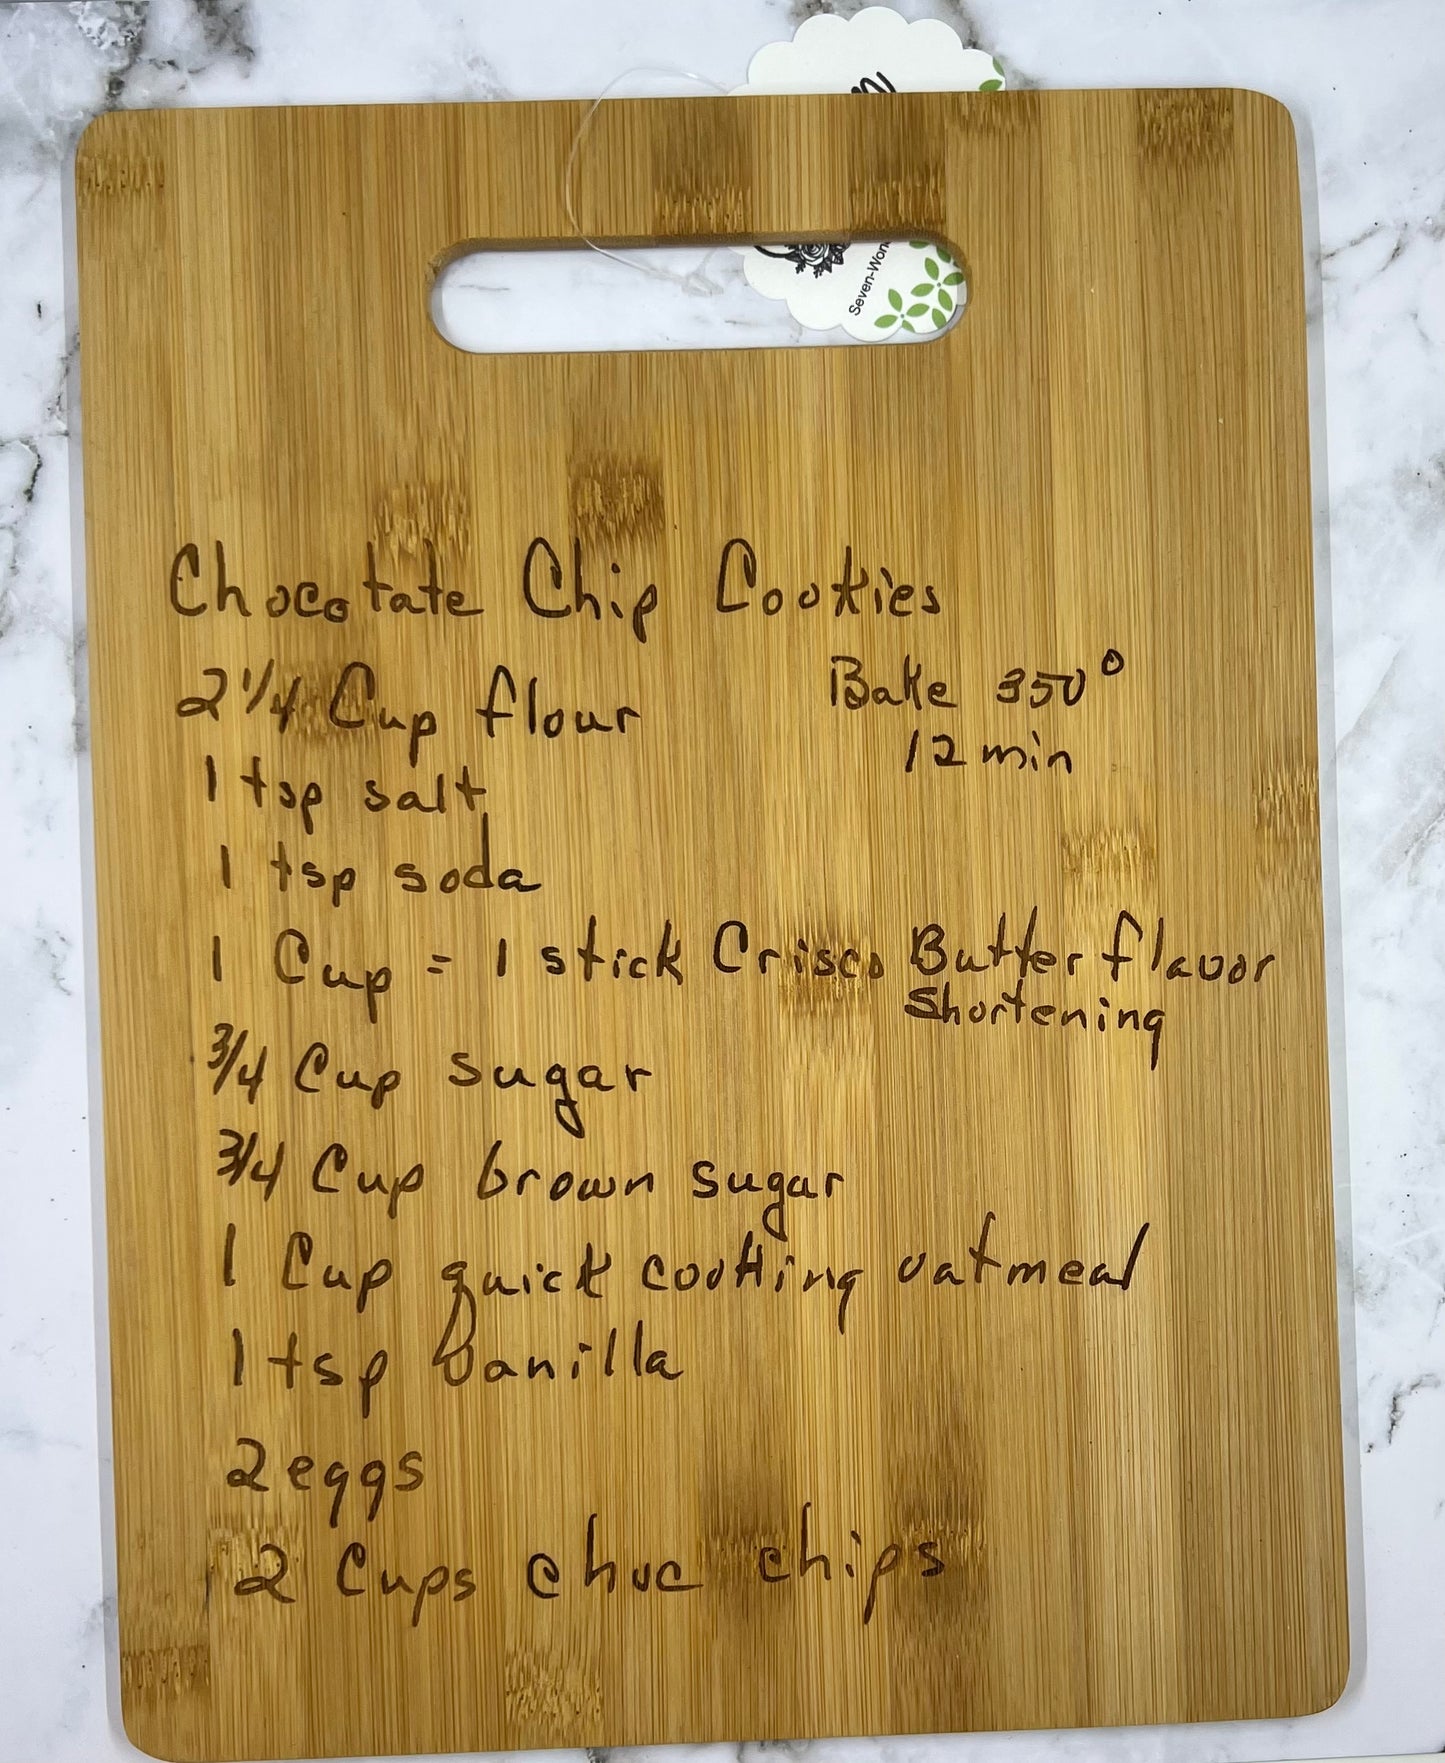 Seven-Won
Chocolate Chip Cookies
2 1/4 Cup flour
Bake 350°
12 min
1 tsp salt
1 tsp soda
1 Cup = 1 stick Crisco Butter flavor
Shortening
3/4 Cup sugar
3/4 Cup brown sugar
1 Cup quick cooking oatmeal
1 tsp Vanilla
2 eggs
2 Cups choc chips